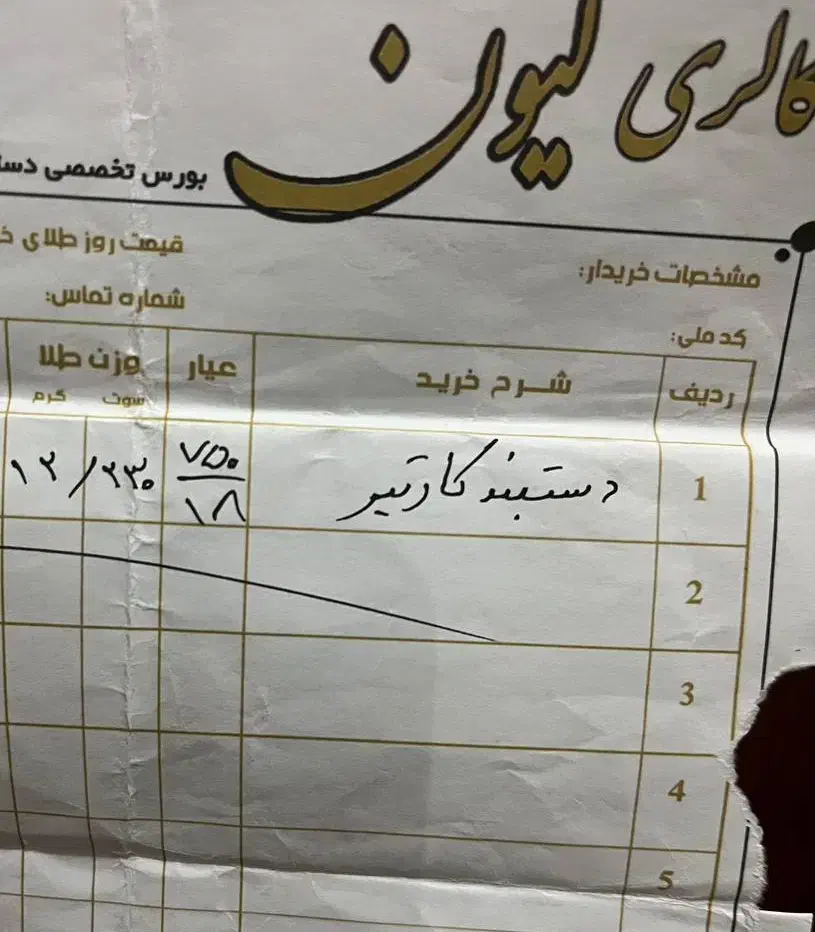 گالری لیون
بورس تخصصی
مشخصات خریدار:
قیمت روز طلای
کد ملی:
شماره تماس:
ردیف شـرح خرید عیار وزن طلا
سوت گرم
1 دستبند کارتیر ۷۵۰/۱۸ ۱۳/۲۳۰
2
3
4
5